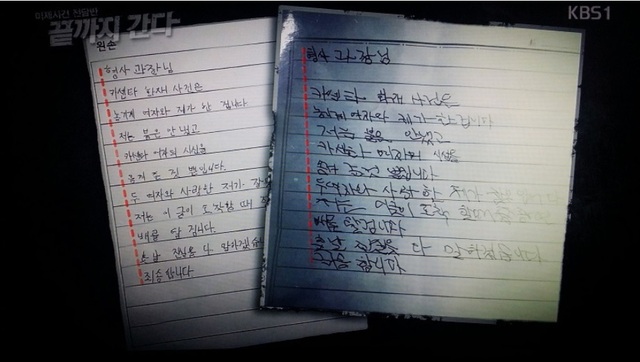 미제사건 전담반
끝까지 간다
KBS1
왼손
형사 과장님
카센타 화재 사건은
농기계 여자와 제가 한 겁니다
저는 불은 안 냈고
카센타 여자의 시신을
옮겨 준 것 뿐입니다.
두 여자와 사랑한 저가
저는 이 글이 도착할 때
배를 탈 겁니다.
훗날 진실을 다 말하겠습니다
죄송합니다.
형사 과장님
카센타 화재 사건은
농기계 여자와 제가 한 겁니다
저는 불은 안 냈고
카센타 여자의 시신을
옮겨 준 것 뿐입니다
두 여자와 사랑한 저가
저는 이 글이 도착할
배를 탈 겁니다
훗날 진실을 다 말하겠습니다
죄송합니다